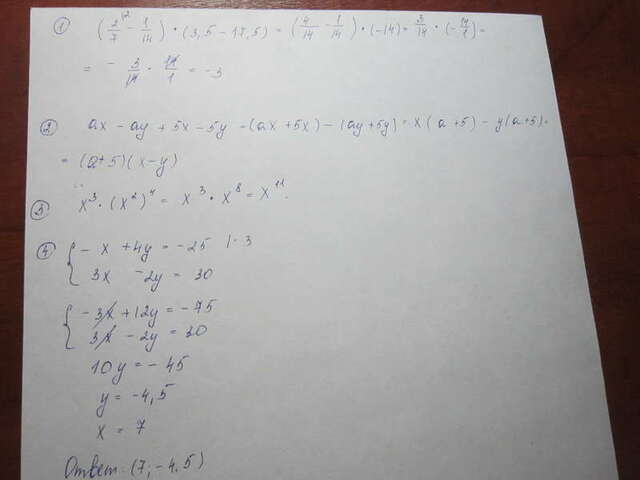 ① (2/7 \2 - 1/14) · (3,5 - 17,5) = (4/14 - 1/14) · (-14) = 3/14 · (-14/1) =
= - 3/14 · 14/1 = -3
② ax - ay + 5x - 5y - (ax + 5x) - (ay + 5y) = x(a + 5) - y(a + 5) =
= (a + 5)(x - y)
③ x³ · (x²)⁴ = x³ · x⁸ = x¹¹.
④ { - x + 4y = -25 | · 3
3x - 2y = 30
{ - 3x + 12y = -75
3x - 2y = 30
10y = - 45
y = -4,5
x = 7
Ответ: (7; -4,5)